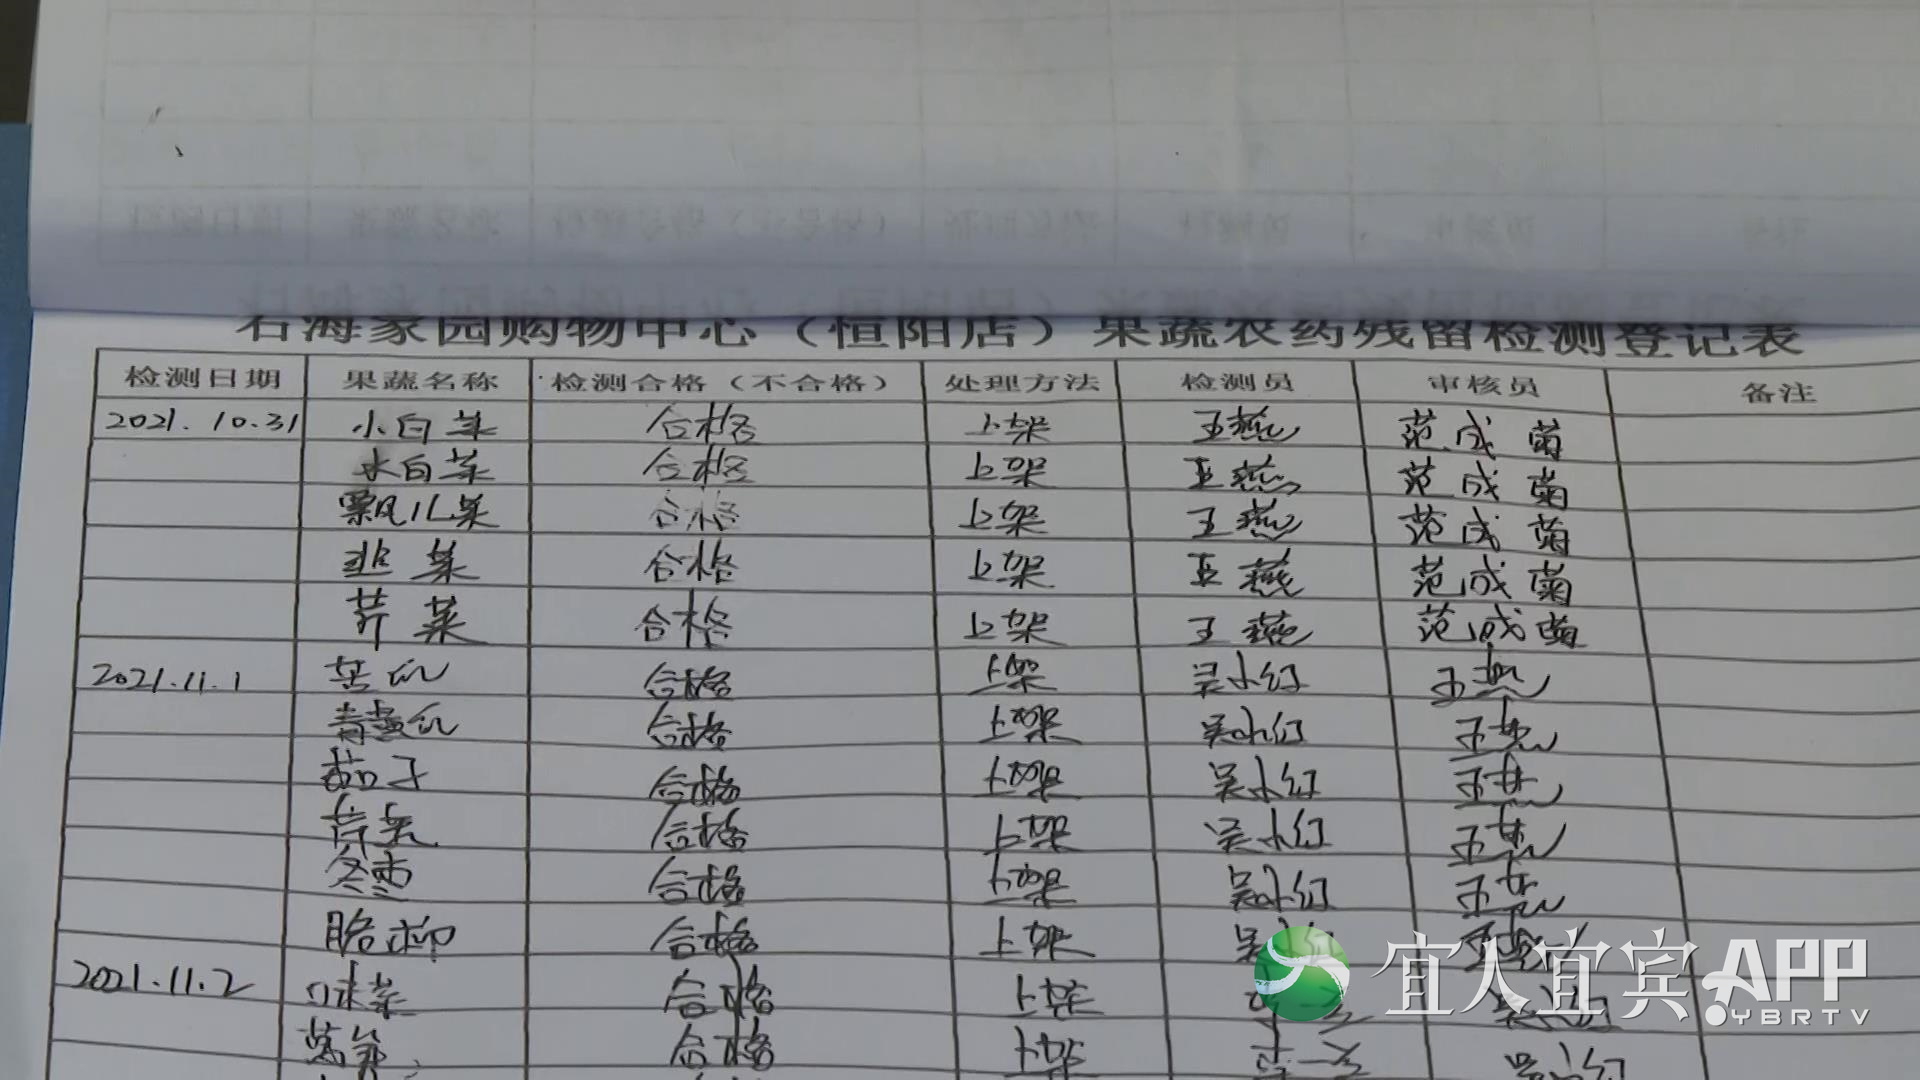 石海家园购物中心（恒阳店）果蔬农药残留检测登记表
检测日期 果蔬名称 检测合格（不合格） 处理方法 检测员 审核员 备注
2021.10.31 小白菜 合格 上架 王燕 范成菊
水白菜 合格 上架 王燕 范成菊
飘儿菜 合格 上架 王燕 范成菊
韭菜 合格 上架 王燕 范成菊
芹菜 合格 上架 王燕 范成菊
2021.11.1 苦瓜 合格 上架 吴小红 王燕
合格 上架 吴小红 王燕
茄子 合格 上架 吴小红 王燕
芹菜 合格 上架 吴小红 王燕
冬枣 合格 上架 吴小红 王燕
合格 上架 吴小红 王燕
2021.11.2 合格 上架 吴小红
莴笋 合格 上架 吴小红
宜人宜宾APP
YBRTV